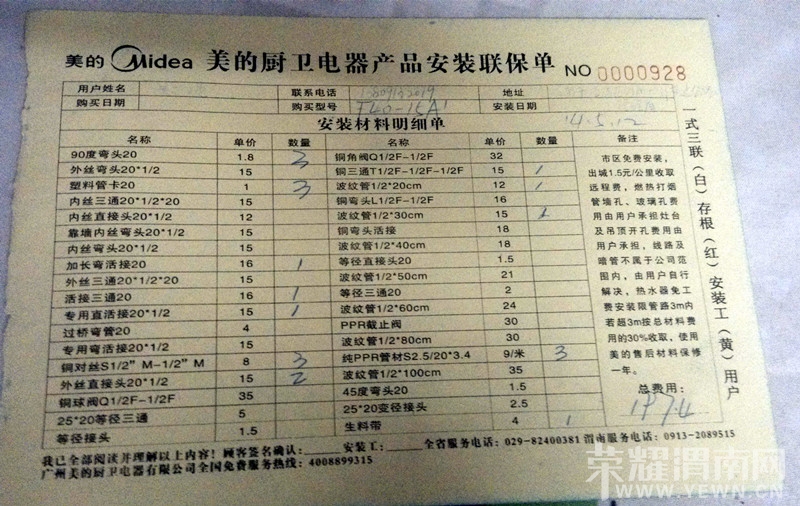 美的 Midea 美的厨卫电器产品安装联保单 NO 0000928
用户姓名 联系电话 地址
购买日期 购买型号 安装日期 14.5.12
安装材料明细单
名称 单价 数量 名称 单价 数量 备注
90度弯头20 1.8 3 铜角阀Q1/2F-1/2F 32
外丝弯头20*1/2 15 铜三通T1/2F-1/2F-1/2F 15 1
塑料管卡20 1 3 波纹管1/2*20cm 12 1
内丝三通20*1/2*20 15 铜弯头L1/2F-1/2F 16
内丝直接头20*1/2 12 波纹管1/2*30cm 15 1
靠墙内丝弯头20*1/2 15 铜弯头活接 18
内丝弯头20*1/2 15 波纹管1/2*40cm 18
加长弯活接20 16 1 等径直接头20 1.5
外丝三通20*1/2*20 15 波纹管1/2*50cm 21
活接三通20 16 1 等径三通20 2
专用直活接20*1/2 15 1 波纹管1/2*60cm 24
过桥弯管20 4 PPR截止阀 30
专用弯活接20*1/2 15 波纹管1/2*80cm 30
铜对丝S1/2”M-1/2”M 8 3 纯PPR管材S2.5/20*3.4 9/米 3
外丝直接头20*1/2 15 2 波纹管1/2*100cm 35
铜球阀Q1/2F-1/2F 35 45度弯头20 1.5
25*20等径三通 5 25*20变径接头 2.5
等径接头 1.5 生料带 4 1
市区免费安装，
出城1.5元/公里收取
远程费，燃热打烟
管墙孔、玻璃孔费
用由用户承担灶台
及吊顶开孔费用由
用户承担，线路及
暗管不属于公司范
围内，由用户自行
解决，热水器免工
费安装限管路3m内
若超3m按总材料费
用的30%收取，使用
美的售后材料保修
一年。
总费用：
一式三联（白）存根（红）安装工（黄）用户
我已全部阅读并理解以上内容！顾客签名确认： 安装工： 全省服务电话：029-82400381 渭南服务电话：0913-2089515
广州美的厨卫电器有限公司全国免费服务热线：4008899315
荣耀渭南网
WWW.YEWN.CN